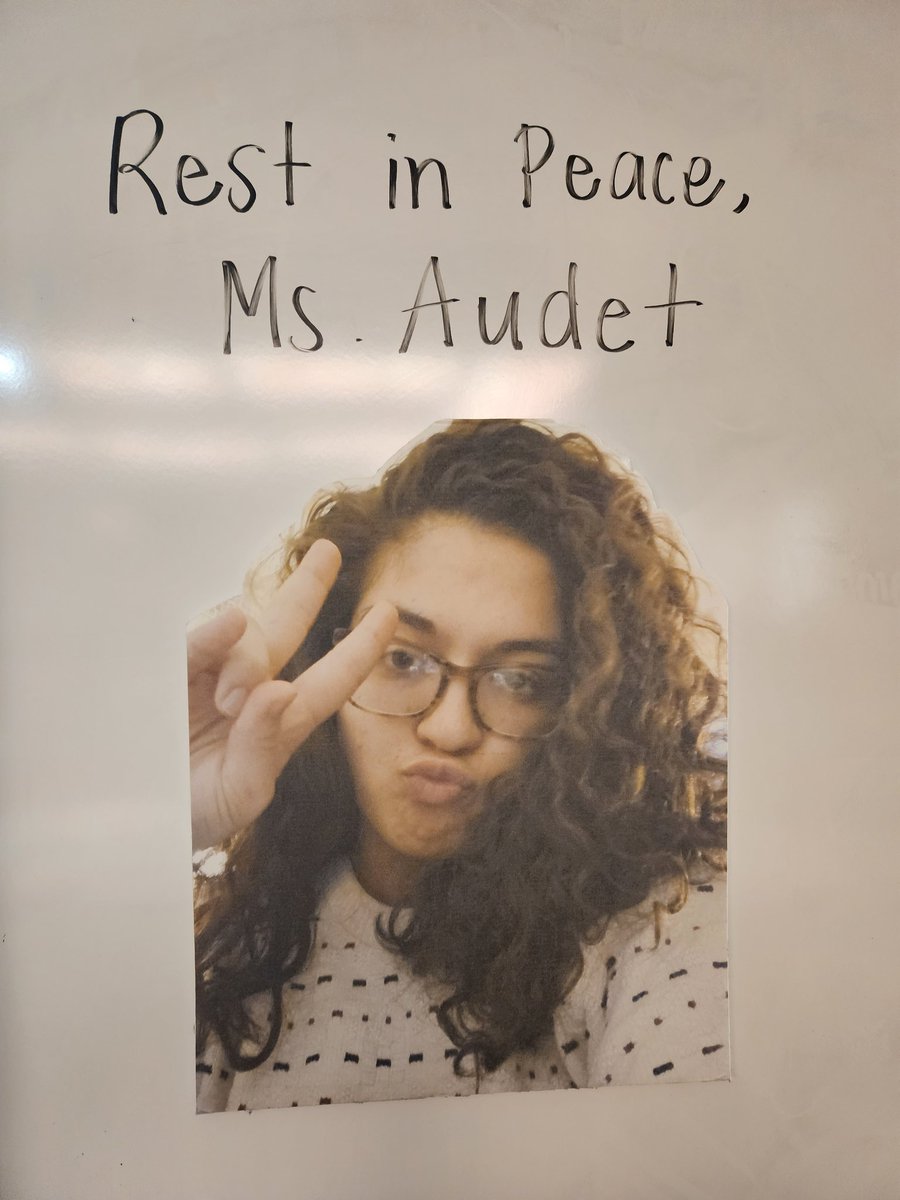 Rest in Peace,
Ms. Audet